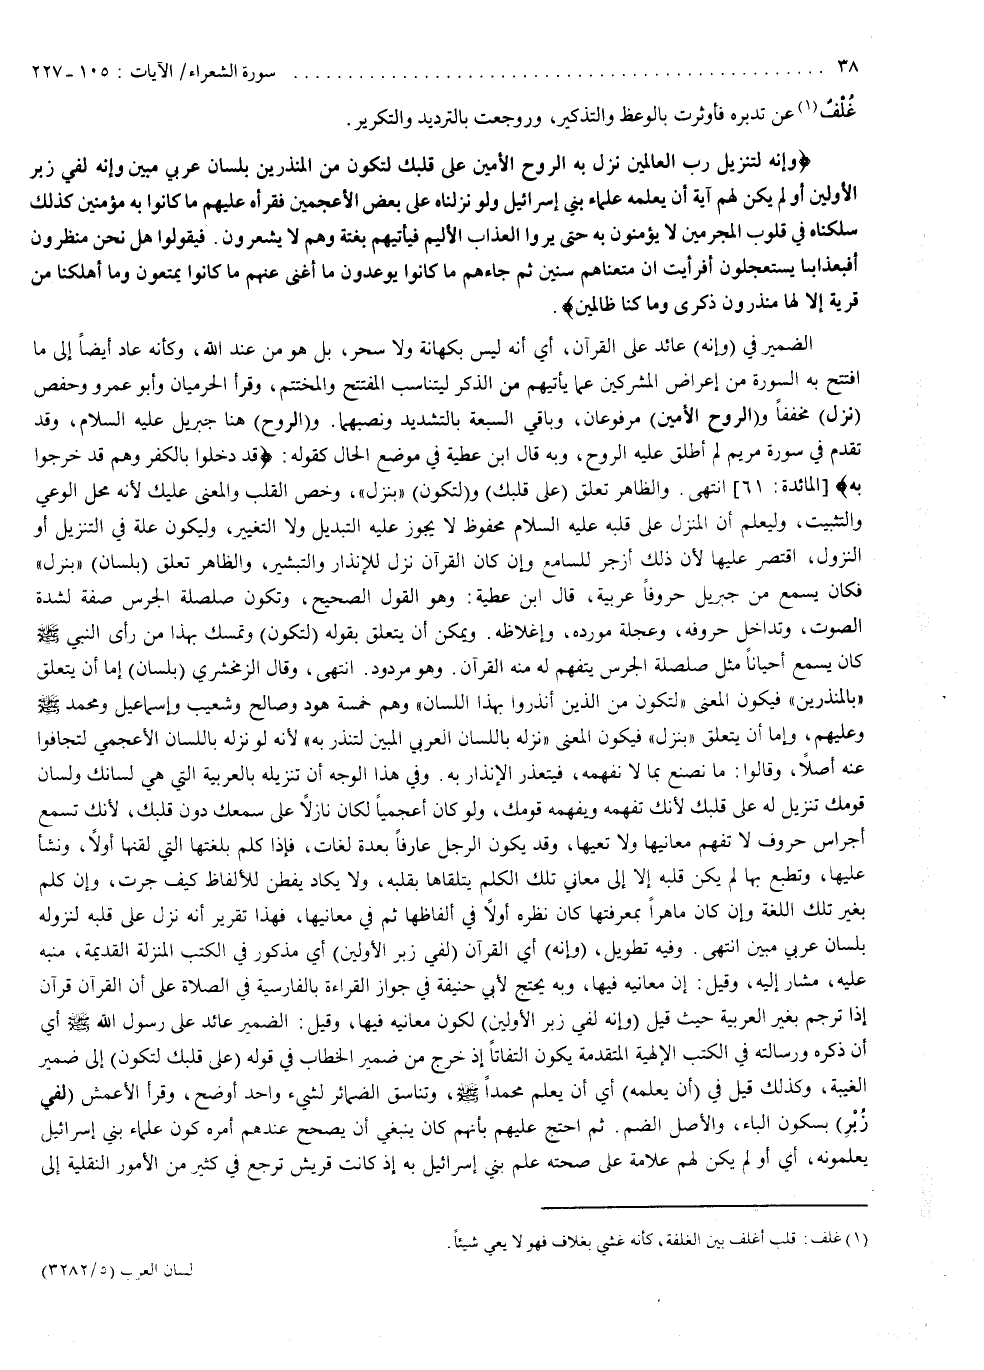 ٣٨ ................................................ سورة الشعراء/ الآيات : ١٠٥ - ٢٢٧
غُلْفٌ(١) عن تدبره فأوثرت بالوعظ والتذكير، وروجعت بالترديد والتكرير.
﴿وإنه لتنزيل رب العالمين نزل به الروح الأمين على قلبك لتكون من المنذرين بلسان عربي مبين وإنه لفي زبر
الأولين أو لم يكن لهم آية أن يعلمه علماء بني إسرائيل ولو نزلناه على بعض الأعجمين فقرأه عليهم ما كانوا به مؤمنين كذلك
سلكناه في قلوب المجرمين لا يؤمنون به حتى يروا العذاب الأليم فيأتيهم بغتة وهم لا يشعرون. فيقولوا هل نحن منظرون
أفبعذابنا يستعجلون أفرأيت ان متعناهم سنين ثم جاءهم ما كانوا يوعدون ما أغنى عنهم ما كانوا يمتعون وما أهلكنا من
قرية إلا لها منذرون ذكرى وما كنا ظالمين﴾.
الضمير في (وإنه) عائد على القرآن، أي أنه ليس بكهانة ولا سحر، بل هو من عند الله، وكأنه عاد أيضاً إلى ما
افتتح به السورة من إعراض المشركين عما يأتيهم من الذكر ليتناسب المفتتح والمختتم، وقرأ الحرميان وأبو عمرو وحفص
(نزل) مخففاً و(الروح الأمين) مرفوعان، وباقي السبعة بالتشديد ونصبهما. و(الروح) هنا جبريل عليه السلام، وقد
تقدم في سورة مريم لم أطلق عليه الروح، وبه قال ابن عطية في موضع الحال كقوله: ﴿قد دخلوا بالكفر وهم قد خرجوا
به﴾ [المائدة: ٦١] انتهى. والظاهر تعلق (على قلبك) و(لتكون) «بنزل»، وخص القلب والمعنى عليك لأنه محل الوعي
والتثبيت، وليعلم أن المنزل على قلبه عليه السلام محفوظ لا يجوز عليه التبديل ولا التغيير، وليكون علة في التنزيل أو
النزول، اقتصر عليها لأن ذلك أزجر للسامع وإن كان القرآن نزل للإنذار والتبشير، والظاهر تعلق (بلسان) «بنزل»
فكان يسمع من جبريل حروفاً عربية، قال ابن عطية: وهو القول الصحيح، وتكون صلصلة الجرس صفة لشدة
الصوت، وتداخل حروفه، وعجلة مورده، وإغلاظه. ويمكن أن يتعلق بقوله (لتكون) وتمسك بهذا من رأى النبي ﷺ
كان يسمع أحياناً مثل صلصلة الجرس يتفهم له منه القرآن. وهو مردود. انتهى، وقال الزمخشري (بلسان) إما أن يتعلق
«بالمنذرين» فيكون المعنى «لتكون من الذين أنذروا بهذا اللسان» وهم خمسة هود وصالح وشعيب وإسماعيل ومحمد ﷺ
وعليهم، وإما أن يتعلق «بنزل» فيكون المعنى «نزله باللسان العربي المبين لتنذر به» لأنه لو نزله باللسان الأعجمي لتجافوا
عنه أصلاً، وقالوا: ما نصنع بما لا نفهمه، فيتعذر الإنذار به. وفي هذا الوجه أن تنزيله بالعربية التي هي لسانك ولسان
قومك تنزيل له على قلبك لأنك تفهمه ويفهمه قومك، ولو كان أعجمياً لكان نازلاً على سمعك دون قلبك، لأنك تسمع
أجراس حروف لا تفهم معانيها ولا تعيها، وقد يكون الرجل عارفاً بعدة لغات، فإذا كلم بلغتها التي لقنها أولاً، ونشأ
عليها، وتطبع بها لم يكن قلبه إلا إلى معاني تلك الكلم يتلقاها بقلبه، ولا يكاد يفطن للألفاظ كيف جرت، وإن كلم
بغير تلك اللغة وإن كان ماهراً بمعرفتها كان نظره أولاً في ألفاظها ثم في معانيها، فهذا تقرير أنه نزل على قلبه لنزوله
بلسان عربي مبين انتهى. وفيه تطويل، (وإنه) أي القرآن (لفي زبر الأولين) أي مذكور في الكتب المنزلة القديمة، منبه
عليه، مشار إليه، وقيل: إن معانيه فيها، وبه يحتج لأبي حنيفة في جواز القراءة بالفارسية في الصلاة على أن القرآن قرآن
إذا ترجم بغير العربية حيث قيل (وإنه لفي زبر الأولين) لكون معانيه فيها، وقيل: الضمير عائد على رسول الله ﷺ أي
أن ذكره ورسالته في الكتب الإلهية المتقدمة يكون التفاتاً إذ خرج من ضمير الخطاب في قوله (على قلبك لتكون) إلى ضمير
الغيبة، وكذلك قيل في (أن يعلمه) أي أن يعلم محمداً ﷺ، وتناسق الضمائر لشيء واحد أوضح، وقرأ الأعمش (لفي
زُبْرِ) بسكون الباء، والأصل الضم. ثم احتج عليهم بأنهم كان ينبغي أن يصحح عندهم أمره كون علماء بني إسرائيل
يعلمونه، أي أو لم يكن لهم علامة على صحته علم بني إسرائيل به إذ كانت قريش ترجع في كثير من الأمور النقلية إلى
(١) غلف: قلب أغلف بين الغلفة، كأنه غشي بغلاف فهو لا يعي شيئاً.
لسان العرب (٣٢٨٢/٥)